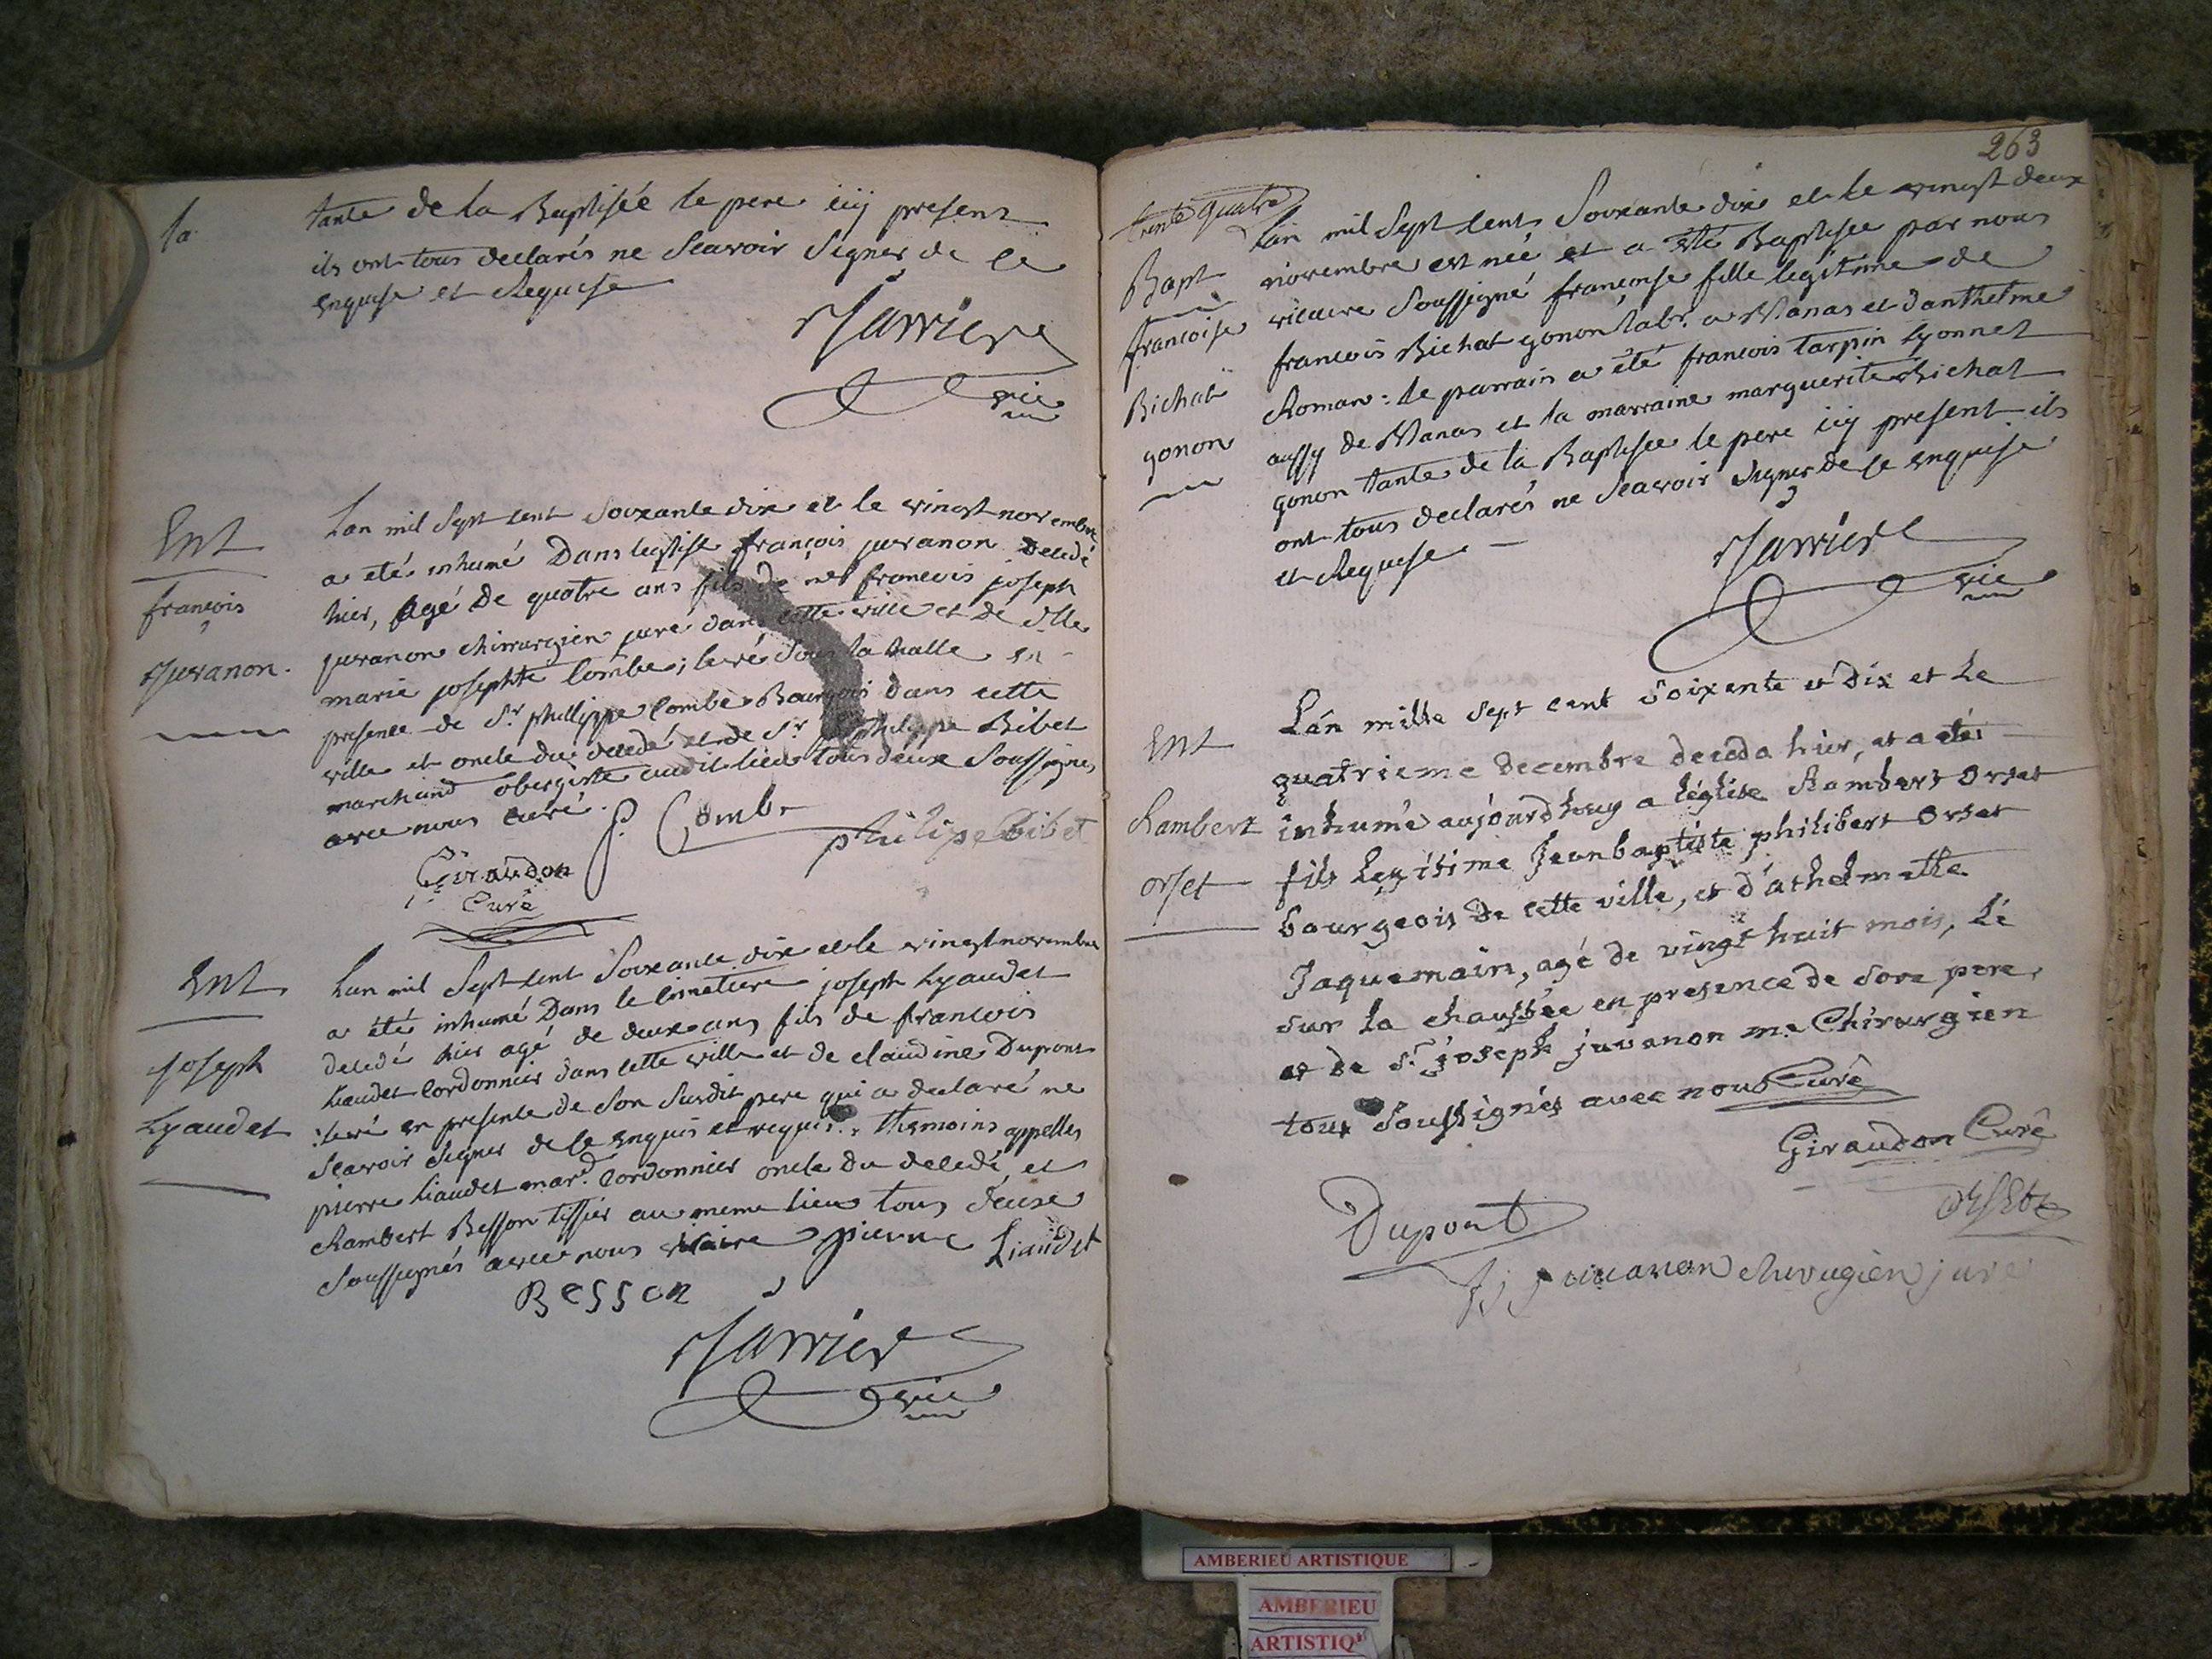 la
tante de la Baptisée le pere icy present
ils ont tous declarés ne Scavoir Signer de ce
enquise et Requise
Jarrier
vic
Ent
françois
Juvanon.
Lan mil Sept cent Soixante dix et le vingt novembre
a été inhumé Dans leglise françois juvanon decedé
hier, agé de quatre ans fils de me francois joseph
juvanon chirurgien juré dans cette ville et de dlle
marie josephte Combe; levé Sous la halle en
presence de Sr phillippe Combe Bourgois dans cette
ville et oncle du decedé et de Sr philippe Bibet
marchand obergiste audit lieu tous deux Soussignes
avec nous curé.
P. Combe
philipe Bibet
Giraudon
Curé
Ent
joseph
Lyaudet
Lan mil Sept cent Soixante dix et le vingt novembre
a été inhumé Dans le Cimetiere joseph Lyaudet
decedé hier agé de deux ans fils de francois
Liaudet Cordonnier dans cette ville et de claudine Dupont
levé en presence de Son Susdit pere qui a declaré ne
Scavoir Signer de ce enquis et requis. themoins appelles
pierre Liaudet mard. Cordonnier oncle du decedé, et
Rambert Besson tissier au meme lieu tous deux
Soussignés avec nous vicaire
pierre Liaudet
Besson
Jarrier
vic
263
trente quatre
Bapt
francoise
Bichat
gonon
Lan mil Sept cent Soixante dix et le vingt deux
novembre est née et a été Baptisée par nous
vicaire Soussigné francoise fille legitime de
francois Bichat gonon labr. a Vanas et danthelme
Roman: le parrain a été francois tarpin Lyonnet
aussy de Vanas et la marraine marguerite Bichat
gonon tante de la Baptisée le pere icy present ils
ont tous declarés ne Scavoir Signer de ce enquise
et Requise
Jarrier
vic
Ent
Rambert
orset
Lán mille sept cent soixente et dix et Le
quatrieme decembre deceda hier, et a été
inhumé aujourdhuy a léglise Rambert orset
fils Legitime Jean baptiste philibert orset
bourgeois de cette ville, et d'athelmette
Jaquemain, agé de vingt huit mois, Lé
sur la chaussée en presence de son pere,
et de Sr. joseph juvanon me Chirurgien
tous soussignés avec nous Curé
Giraudon Curé
Dupont
orset
f, j, juvanon chirugien juré
AMBERIEU ARTISTIQUE
AMBERIEU
ARTISTIQ